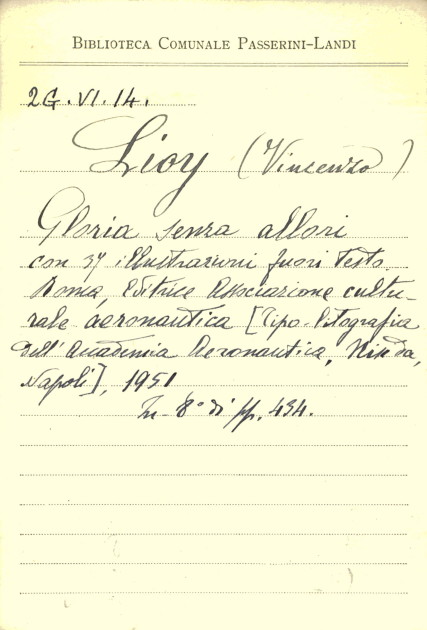 BIBLIOTECA COMUNALE PASSERINI-LANDI
2G.VI.14.
Lioy (Vincenzo)
Gloria senza allori
con 37 illustrazioni fuori testo.
Roma, Editrice Associazione cultu-
rale aeronautica [Tipo-litografia
dell'Accademia Aeronautica, Nisida,
Napoli], 1951
In-8° di pp. 434.